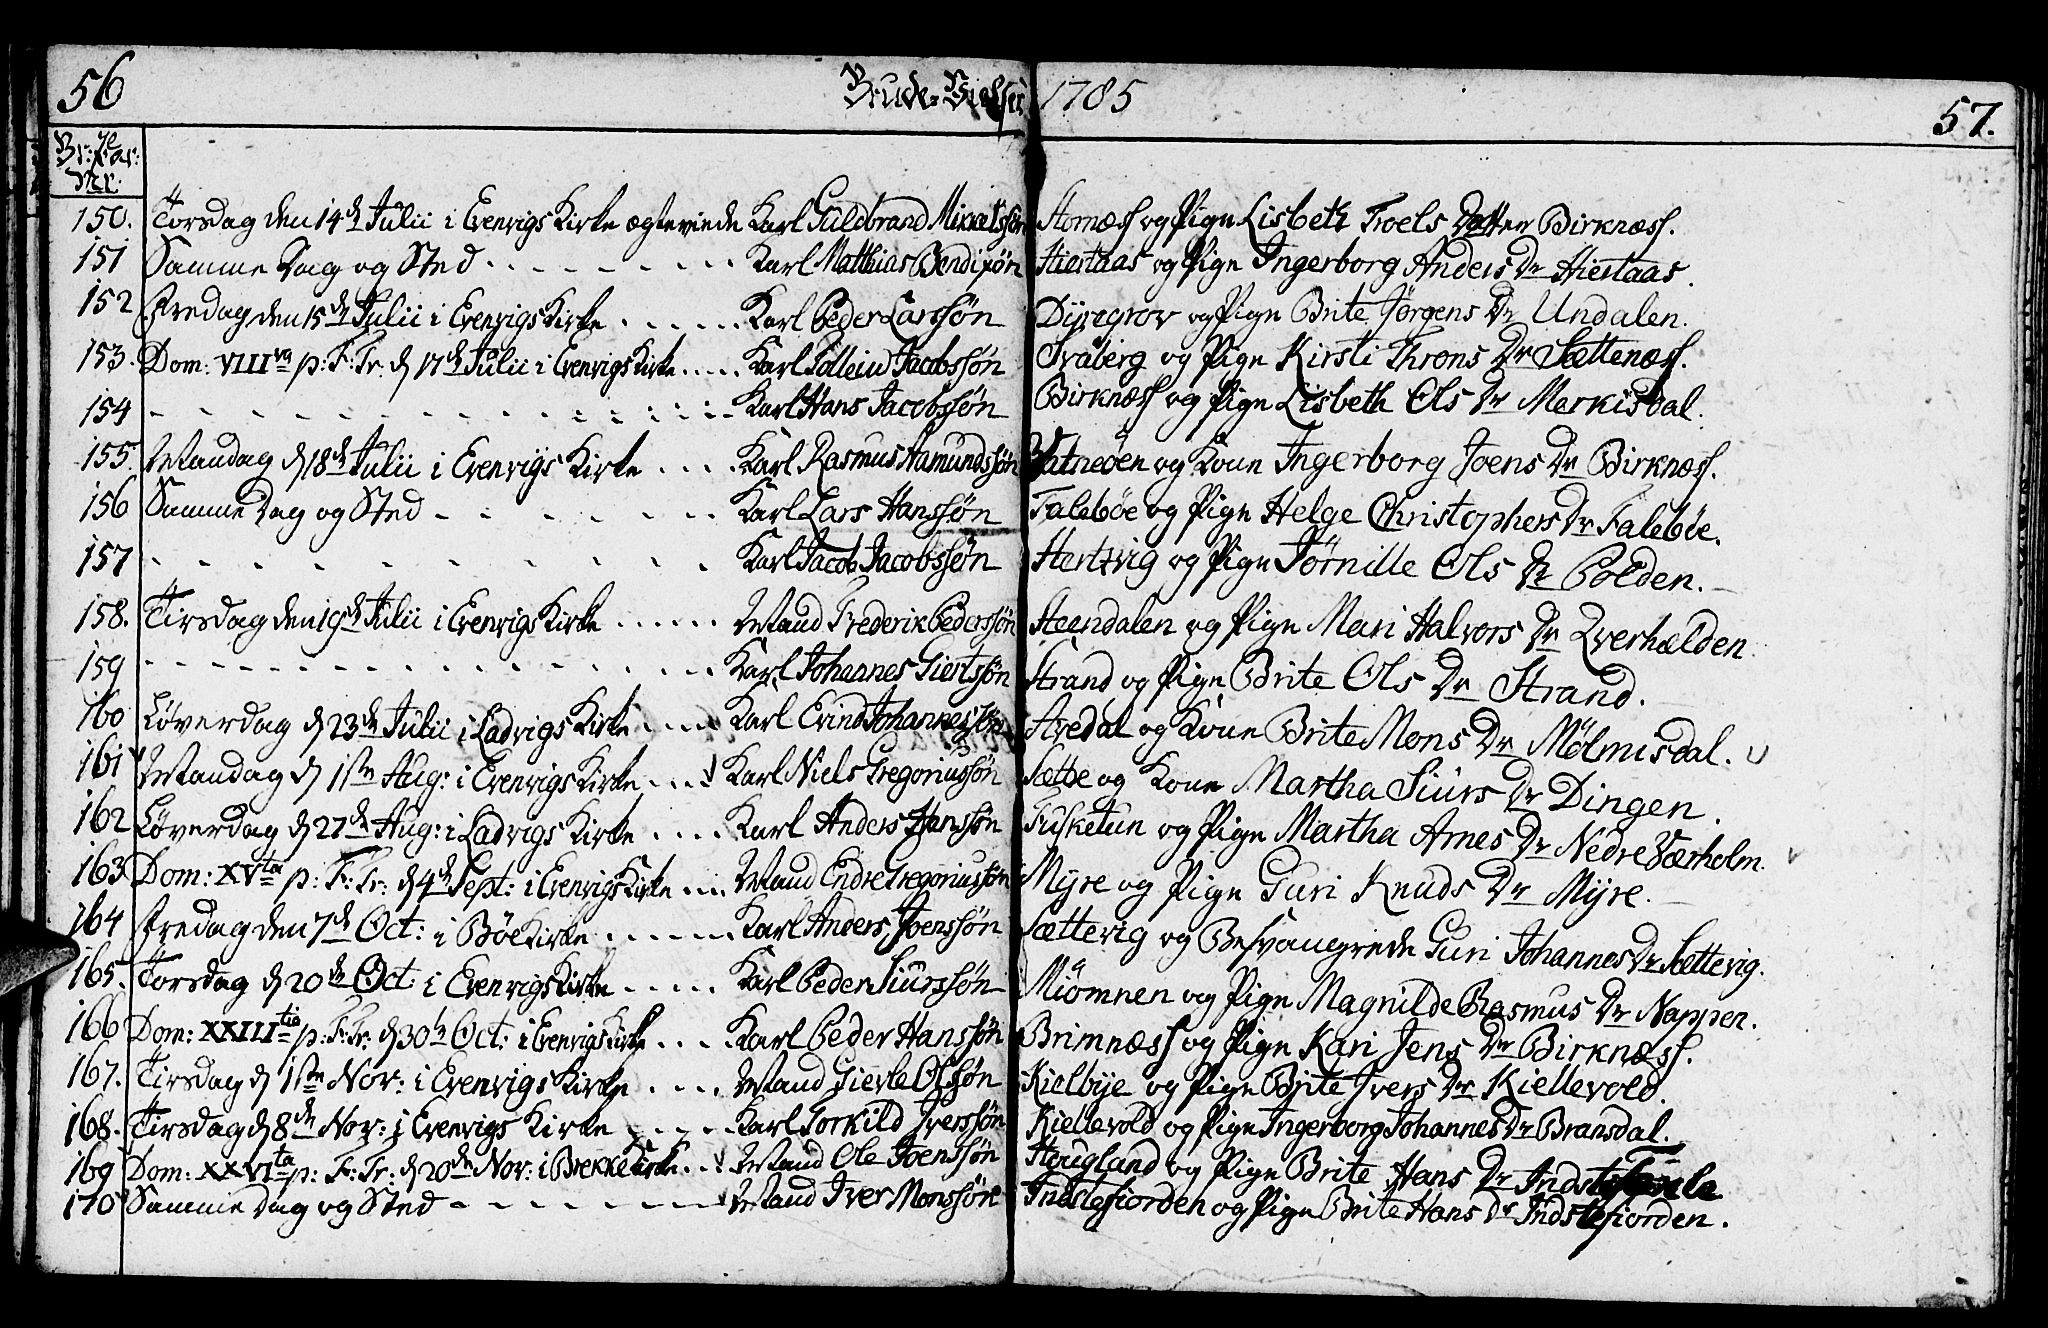 56 Brude-Vielser 1785 57.
Br: Par: Nr.
150. Torsdag den 14de Julii i Evenvigs Kirke ægteviede Karl Guldbrand Mikkelssøn Stomæss og Pige Lisbeth Troels Datter Birknæss.
151 Samme Dag og Sted - - - Karl Matthias Bendixøn Hiertaas og Pige Ingerborg Anders Dr Hiertaas.
152 Fredag den 15de Julii i Evenvigs Kirke - - - Karl Peder Larssøn Dÿregrov og Pige Brite Jørgens Dr Undalen.
153. Dom: VIIIva p: F: Tr: d 17de Julii i Evenvigs Kirke - - - Karl Tollein Jacobssøn Svaberg og Pige Kirsti Trons Dr Sættenæss.
154 - - - Karl Hans Jacobssøn Birknæss og Pige Lisbeth Ols Dr Merkisdal.
155. Mandag d 18de Julii i Evenvigs Kirke - - - Karl Rasmus Hamundssøn Vatneøen og Kone Ingerborg Joens Dr Birknæss.
156 Samme Dag og Sted - - - Karl Lars Hanssøn Falebøe og Pige Helge Christophers Dr Falebøe.
157 - - - Karl Jacob Jacobssøn Hertvig og Pige Jørnille Ols Dr Polden.
158. Tirsdag den 19de Julii i Evenvigs Kirke - - - Mand Frederik Pederssøn Steendalen og Pige Mari Halvors Dr Qverhælden
159 - - - Karl Johannes Giertssøn Strand og Pige Brite Ols Dr Strand.
160 Løverdag d 23de Julii i Ladvigs Kirke - - - Karl Evind Johannessøn Aredal og Kone Brite Mons Dr Mølmisdal.
161 Mandag d 1ste Aug: i Evenvigs Kirke - - - Karl Niels Gregoriussøn Sættøe og Kone Martha Siurs Dr Dingen.
162 Løverdag d 27de Aug: i Ladvigs Kirke - - - Karl Anders Hanssøn Fusketun og Pige Martha Arnes Dr Nedre Værholm.
163 Dom: XVta p: F: Tr: d 4de Sept: i Evenvigs Kirke - - - Mand Endre Gregoriussøn Mÿre og Pige Guri Knuds Dr Mÿre.
164 Fredag den 7de Oct: i Bøe Kirke - - - Karl Anders Joenssøn Sættevig og Besvangrede Guri Johannes Dr Sættevig.
165. Torsdag d 20de Oct: i Evenvigs Kirke - - - Karl Peder Siurssøn Miømnen og Pige Magnilde Rasmus Dr Nappen.
166 Dom: XXIIItia p: F: Tr: d 30te Oct: i Evenvigs Kirke - - - Karl Peder Hanssøn Brimnæss og Pige Kari Jens Dr Birknæss.
167. Tirsdag d 1ste Nov: i Evenvigs Kirke - - - Mand Gierle Olssøn Kielbÿe og Pige Brite Ivers Dr Kiellevold.
168. Tirsdag d 8de Nov: i Evenvigs Kirke - - - Karl Torkild Iverssøn Kiellevold og Pige Ingerborg Johannes Dr Bransdal.
169 Dom: XXVIta p: F: Tr: d 20de Nov: i Brekke Kirke - - - Mand Ole Joenssøn Hougland og Pige Brite Hans Dr
170 Samme Dag og Sted - - - Mand Iver Monssøn Indstefiorden og Pige Brite Hans Dr Indstefiorden.